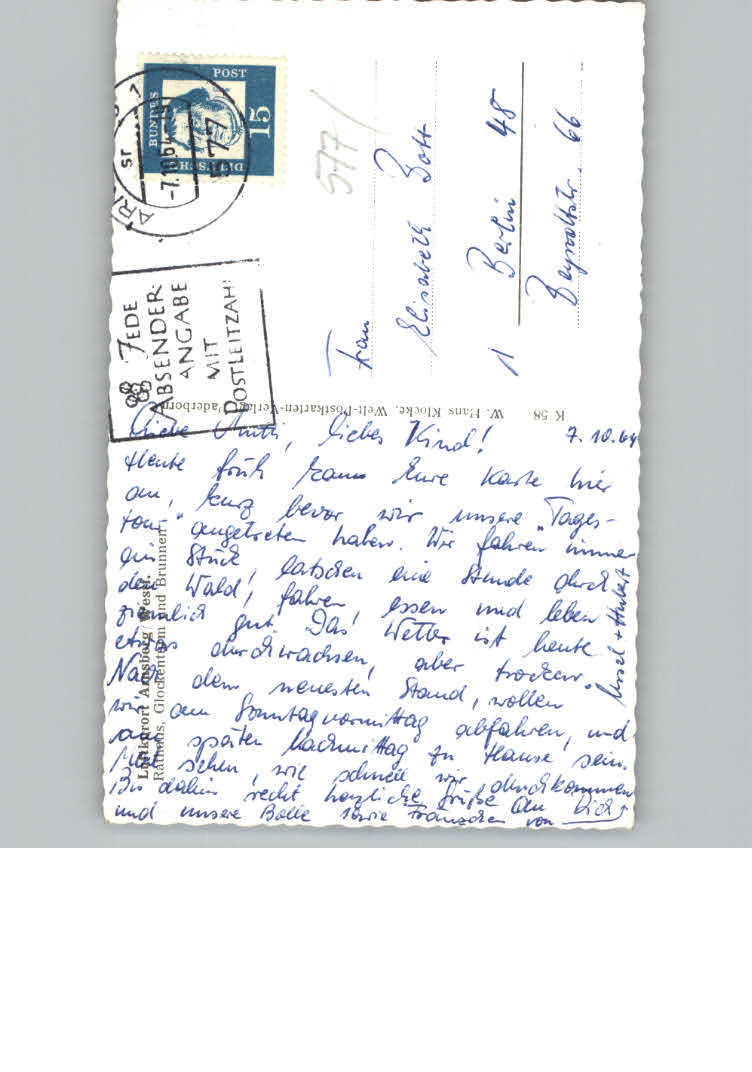 Liebe Mutti, liebes Kind! 7. 10. 64
Heute früh kam Eure Karte hier
an, kurz bevor wir unsere "Tages-
tour" angetreten haben. Wir fahren immer
ein Stück, latschen eine Stunde durch
den Wald, fahren, essen und leben
ziemlich gut. Das Wetter ist heute
etwas durchwachsen, aber trocken.
Nach dem neuesten Stand, wollen
wir am Sonntagvormittag abfahren, und
am späten Nachmittag zu Hause sein.
Mal sehen, wie schnell wir durchkommen
Bis dahin recht herzliche Grüße an Dich
und unsere Bolle sowie Fränzchen von
Ursel + Hubert
Frau
Elisabeth Bott
1 Berlin 48
Beyrodtstr. 66
577/
DEUTSCHE BUNDESPOST
15
-7.10.64
577
JEDE
ABSENDER-
ANGABE
MIT
POSTLEITZAHL
W. Hans Klocke, Welt-Postkarten-Verlag, Paderborn
K 58
Luftkurort Arnsberg/Westf.
Rathaus, Glockenturm und Brunnen